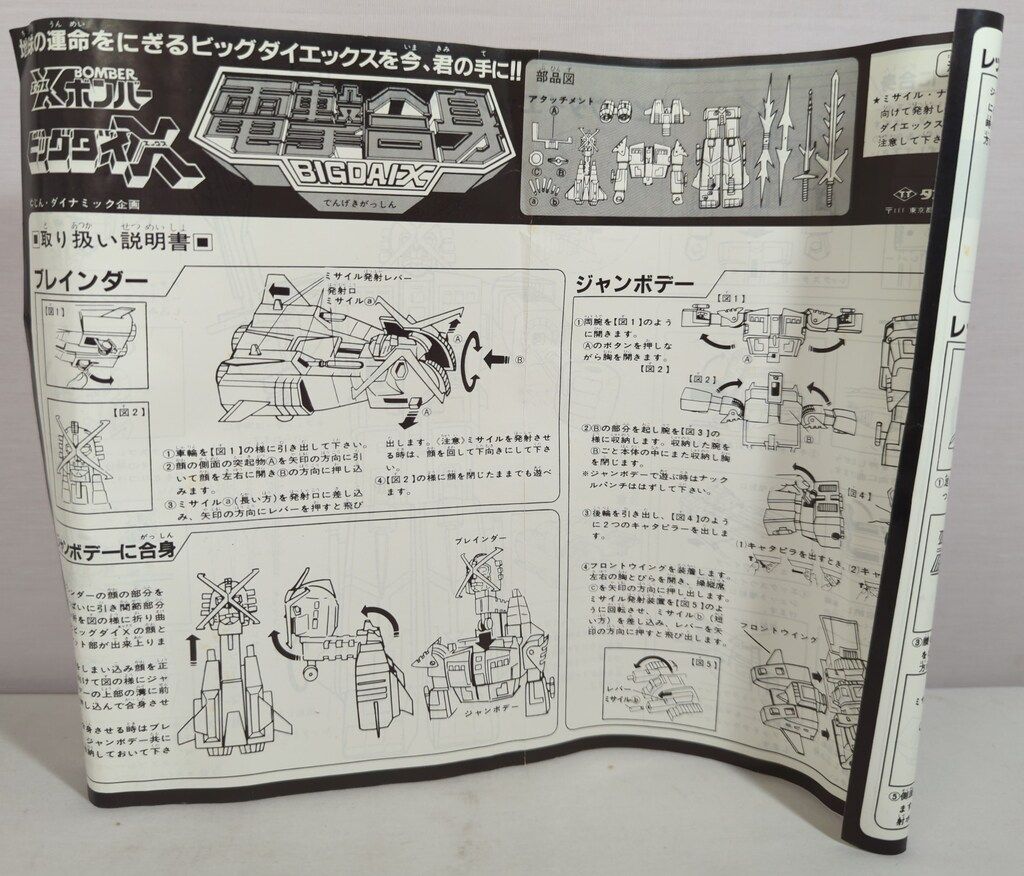 の運命をにぎるビッグダイエックスを今、君の手に!!
うん めい
いま きみ て
BOMBER
Xボンバー
ビッグダイX
エックス
じん・ダイナミック企画
電撃合身
BIGDAIX
でんげきがっしん
部品図
ぶひんず
アタッチメント
A
C
B
a
b
★ミサイル・ナ
向けて発射し
ダイエックス
注意して下さ
〒111 東京
■取り扱い説明書■
あつか せつ めい しょ
ブレインダー
【図1】
【図2】
ミサイル発射レバー
発射口
ミサイルⓐ
Ⓐ
Ⓑ
Ⓐ
①車輪を【図1】の様に引き出して下さい。
②顔の側面の突起物Ⓐを矢印の方向に引
いて顔を左右に開きⒷの方向に押し込
みます。
③ミサイルⓐ(長い方)を発射口に差し込
み、矢印の方向にレバーを押すと飛び
出します。(注意)ミサイルを発射させ
る時は、顔を回して下向きにして下さ
い。
④【図2】の様に顔を閉じたままでも遊べ
ます。
ジャンボデー
【図1】
①両腕を【図1】のよう
に開きます。
Ⓐのボタンを押しな
がら胸を開きます。
【図2】
Ⓐ
【図2】
Ⓑ
②Ⓑの部分を起し腕を【図3】の
様に収納します。収納した腕を
Ⓑごと本体の中にまた収納し胸
を閉じます。
※ジャンボデーで遊ぶ時はナック
ルパンチははずして下さい。
【図4】
③後輪を引き出し、【図4】のよう
に2つのキャタピラーを出しま
す。
(1)キャタピラを出すとき
(2)キャ
④フロントウイングを装着します。
左右の胸とびらを開き、操縦席
Ⓒを矢印の方向に押し出します。
ミサイル発射装置を【図5】のよ
うに回転させ、ミサイルⓑ(短
い方)を差し込み、レバーを矢
印の方向に押すと飛び出します。
フロントウイング
【図5】
レバー
ミサイルⓑ
ャンボデーに合身
がっしん
ンダーの顔の部分を
ぱいに引き関節部分
を図の様に折り曲
ビッグダイXの顔と
ット部が出来上りま
しまい込み顔を正
けて図の様にジャ
ーの上部の溝に前
し込んで合身させ
身させる時はブレ
ジャンボデー共に
納しておいて下さ
ブレインダー
ジャンボデー